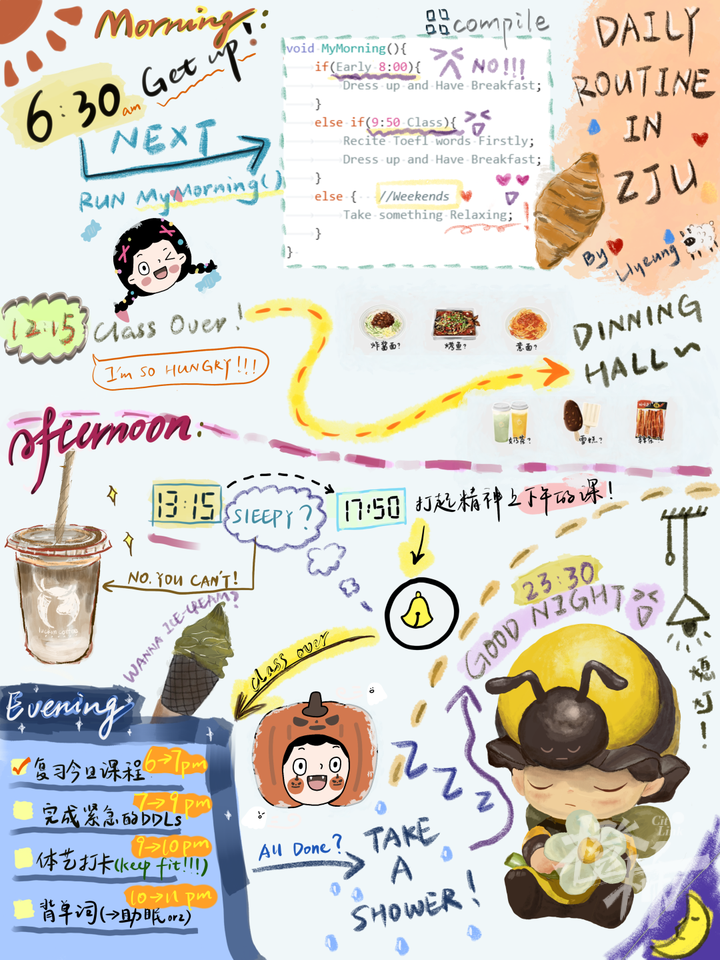 Morning:
Get up!
6:30 am
NEXT
RUN MyMorning()
compile
void MyMorning(){
if(Early 8:00){
NO!!!
Dress up and Have Breakfast;
}
else if(9:50 Class){
Recite Toefl words Firstly;
Dress up and Have Breakfast;
}
else { //Weekends
Take something Relaxing;
}
}
DAILY
ROUTINE
IN
ZJU
By Liyeung
12:15 Class Over!
I'm SO HUNGRY!!!
炸酱面?
烤鱼?
意面?
DINNING
HALL
奶茶?
雪糕?
afternoon:
13:15
SlEEPY?
17:50
打起精神上下午的课!
NO. YOU CAN'T!
WANNA ICE-CREAM?
class over
23:30
GOOD NIGHT
熄灯!
Evening
复习今日课程 6→7pm
完成紧急的DDLs 7→9 pm
体艺打卡(keep fit!!!) 9→10pm
背单词(→助眠orz) 10→11 pm
All Done?
TAKE
A
SHOWER!
Z Z Z